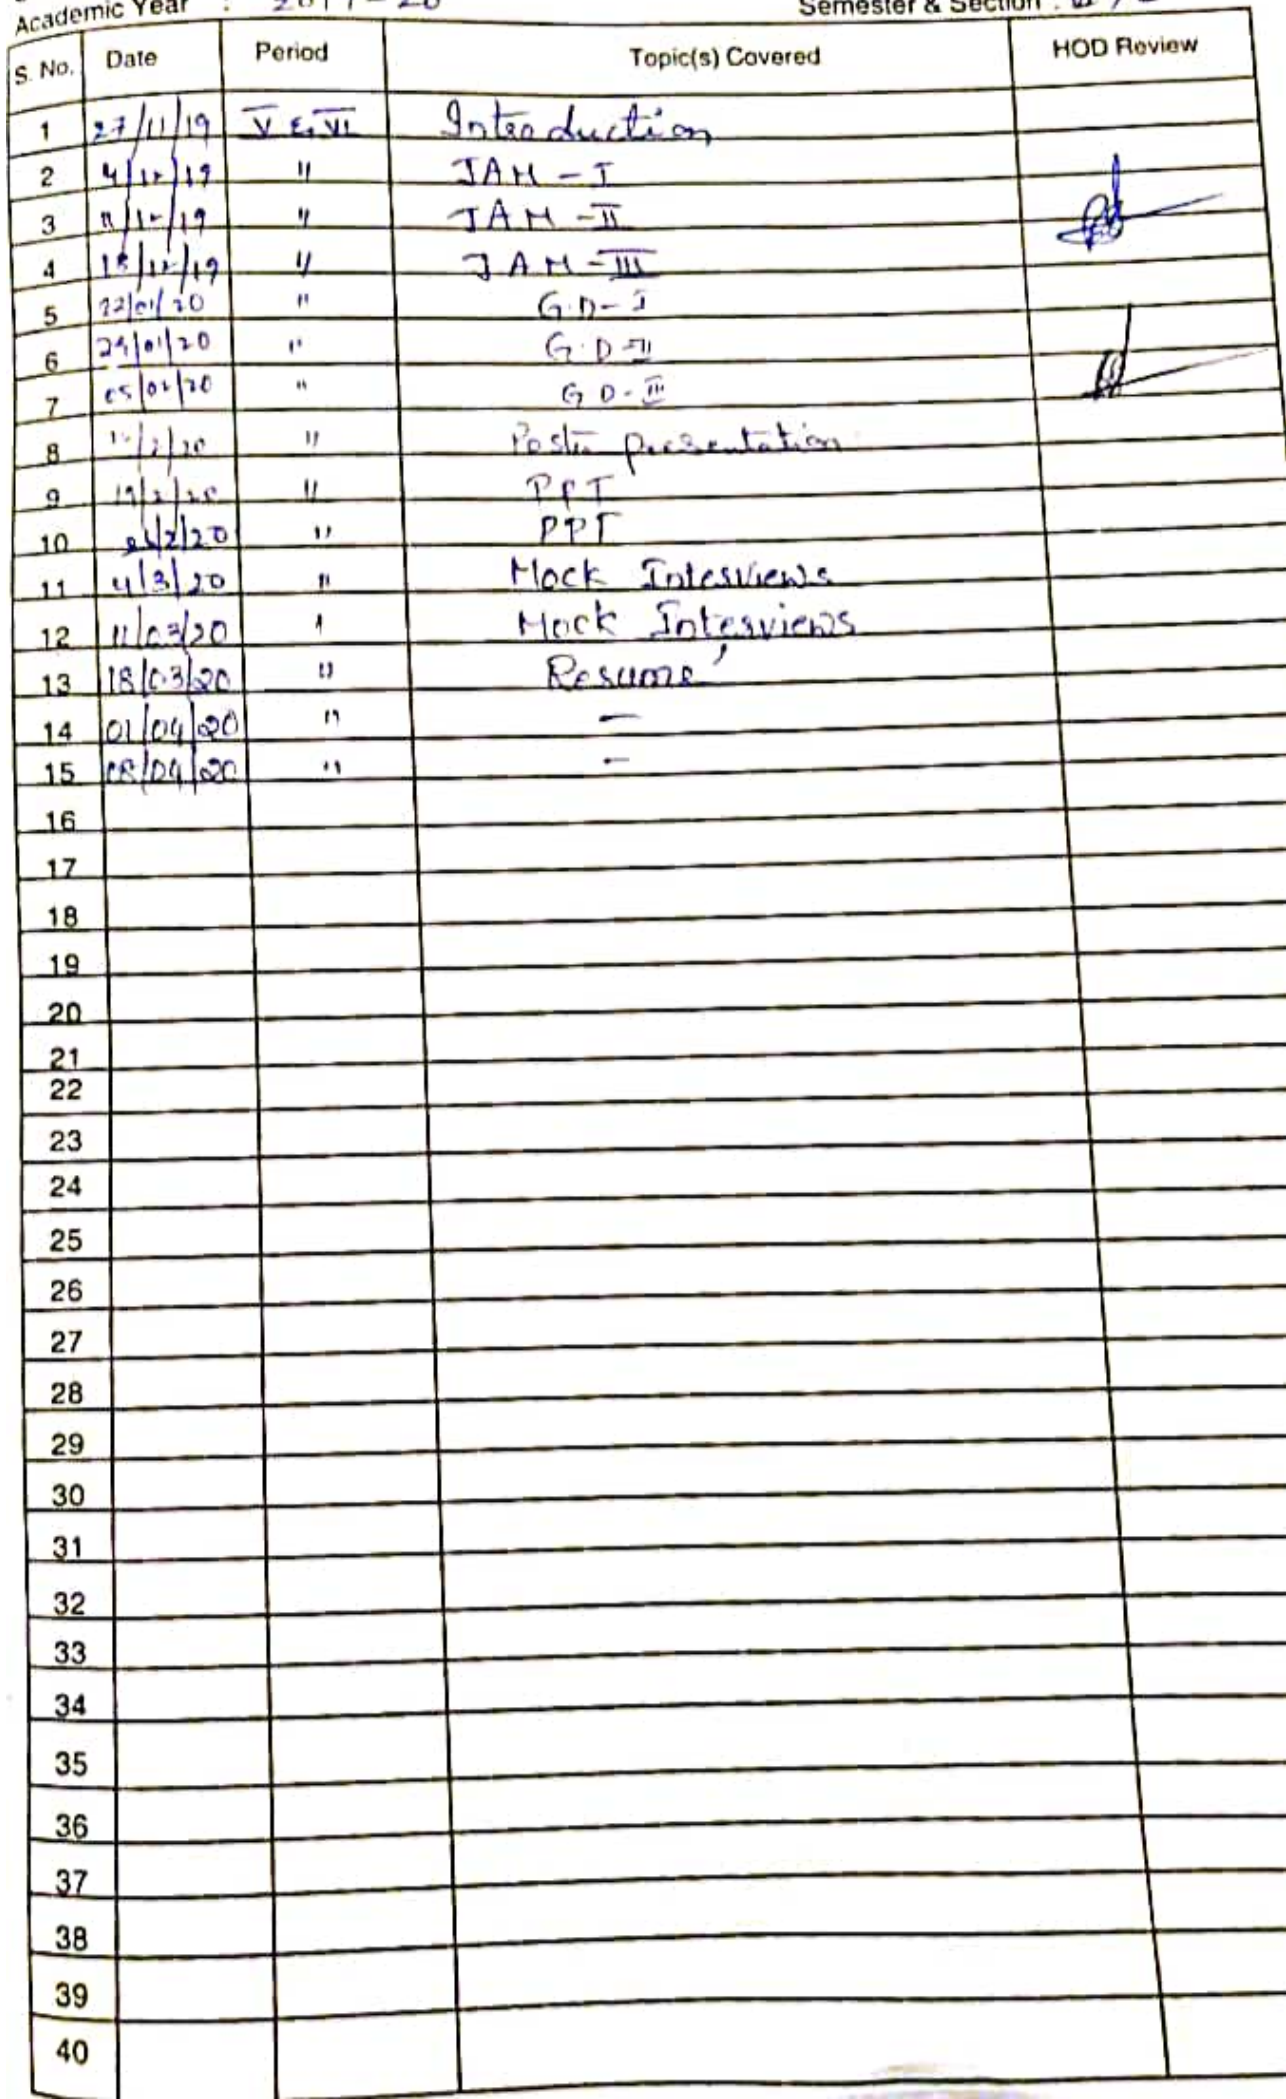 Academic Year : 2019-20 Semester & Section :
S. No. Date Period Topic(s) Covered HOD Review
1 27/11/19 V & VI Introduction
2 4/12/19 " JAM - I
3 11/12/19 " JAM - II
4 18/12/19 " JAM - III
5 22/01/20 " G.D - I
6 29/01/20 " G.D - II
7 05/02/20 " G.D - III
8 " Poster presentation
9 19/2/20 " PPT
10 " PPT
11 4/3/20 " Mock Interviews
12 11/03/20 " Mock Interviews
13 18/03/20 " Resume'
14 01/04/20 " -
15 08/04/20 " -
16
17
18
19
20
21
22
23
24
25
26
27
28
29
30
31
32
33
34
35
36
37
38
39
40